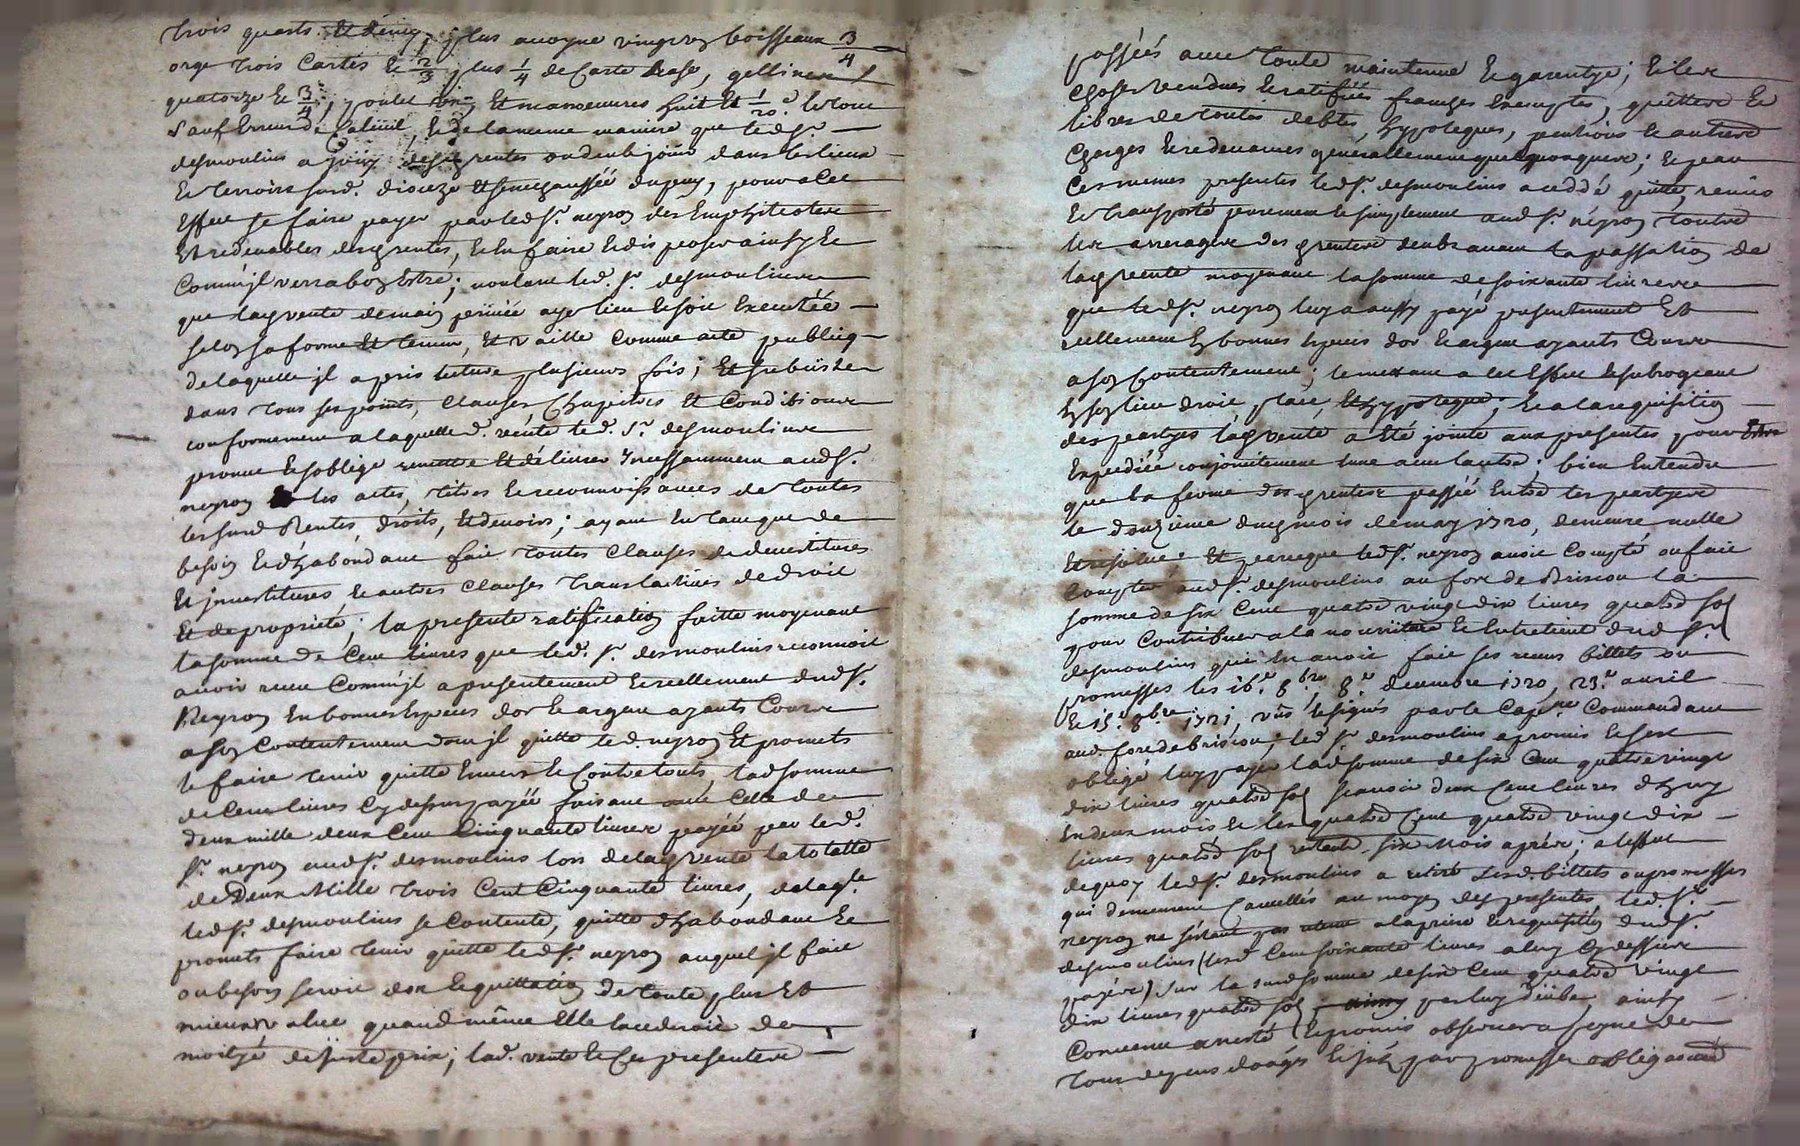 trois quarts et demy, plus avoyne vingt boisseaux 3/4
orge trois Cartes et 2/3 plus 1/4 de Carte Rase, gellines
quatorze et 3/4, poulet et manoeuvres huit et 1/20 le tout
Sauf Erreur de Calcul, et de la meme maniere que led. Sr.
desmoulins a jouy desd rentes ou deub jouir dans les lieux
et terroirs susd. dioceze et senechaussée du puy, pour a cet
Effet se faire payer par led Sr. neyron des Emphiteotes
et redevables desd rentes, et en faire et disposer ainsy et
Comm'jl verra bon Estre; voulant led. Sr. desmoulins
que lad vente demain privée aye lieu et soit Executée
selon sa forme et teneur, et vaille comme acte publiq
de laquelle jl a pris lecture plusieurs fois; et subsiste
dans tous ses points, Clauses Chapitres et Conditions
conformement a laquelle d. vente led. Sr. desmoulins
promet et soblige remettre et délivrer Incessamment aud Sr.
neyron les actes, titres et reconnoissances de toutes
les susd Rentes, droits, et devoirs; ayant en tant que de
besoin et d'habondant fait toutes Clauses de devestitures
et jnvestitures et autres Clauses translatives de droit
et de propriété; la presente ratification faitte moyenant
la somme de Cent livres que led. Sr. desmoulins reconnoit
avoir receu Comm'jl a presentement et reellement dud Sr.
Neyron en bonnes Especes dor et argent ayants Cours
a son Contentement dont jl quitte led. neyron et promets
le faire tenir quitte Envers et Contre touts, lad somme
de Cent livres Cy dessus payée faisant avec Celle de
deux mille deux Cent Cinquante livres payée par led.
Sr. neyron aud Sr. desmoulins lors de lad vente la totalle
de Deux Mille trois Cent Cinquante livres, de laqle.
led Sr. desmoulins se Contente, quitte d'habondant et
promets faire tenir quitte led Sr. neyron auquel jl fait
au besoin servir don et quittation de toute plus et
mieux value quand même Elle lacederoit de
moityé de juste prix; lad. vente et Ces presentes
passées avec toute maintenue et garentye; et les
choses vendues et ratifiées franches Exemptes, quittes et
libres de toutes debtes, hypoteques, pentions et autres
Charges et redevances générallement quelquonques; et par
Ces memes presentes led Sr. desmoulins a ceddé quitte, remis
et transporté purement et simplement aud Sr. neyron toutes
les arrerages desd rentes deubs avant la passation de
lad vente moyenant la somme de soixante livres
que led Sr. neyron luy a aussy payé presentement et
reellement En bonnes Especes dor et argent ayants Cours
a son Contentement; le mettant a cet Effet et subrogeant
En son lieu droit, place, et hypoteque; et a la requisition
des partyes lad vente a Eté jointe aux presentes pour Estre
Expediée conjointement lune avec lautre; bien Entendu
que la ferme desd rentes passée Entre les partyes
le douzieme dud mois de may 1720, demeure nulle
et resolue: et parceque led Sr. neyron avoit Compté ou fait
Compter aud Sr. desmoulins au fort de Briscou la
somme de six Cent quatre vingt dix livres quatre sols
pour Contribuer a la nourriture et Entretient dud Sr.
desmoulins qui En avoit fait ses receus billets ou
promesses les 16e. 8bre, 8e. decembre 1720, 23e. avril
et 15e. 8bre 1721, vüs et signés par le Capne. Commandant
aud. fort de briscou; led Sr desmoulins a promis et sest
obligé luy payer lad somme de six Cent quatre vingt
dix livres quatre sols scavoir deux Cent livres d'huy
En deux mois et les quatre Cent quatre vingt dix
livres quatre sols restante six Mois aprés; a leffet
de quoy led Sr. desmoulins a retiré lesd. billets ou promesses
qui demeurent Cancellés au moyen des presentes, led. Sr.
neyron ne sistant pas a la priere et requisition dud Sr.
desmoulins (lesd Cent soixante livres a luy Cy dessus
payées) sur la susd somme de six Cent quatre vingt
dix livres quatre sols par luy düebe, ainsy
Convenu arresté et promis observer a peyne de
tous depens domages et jnts. par promesses obligations